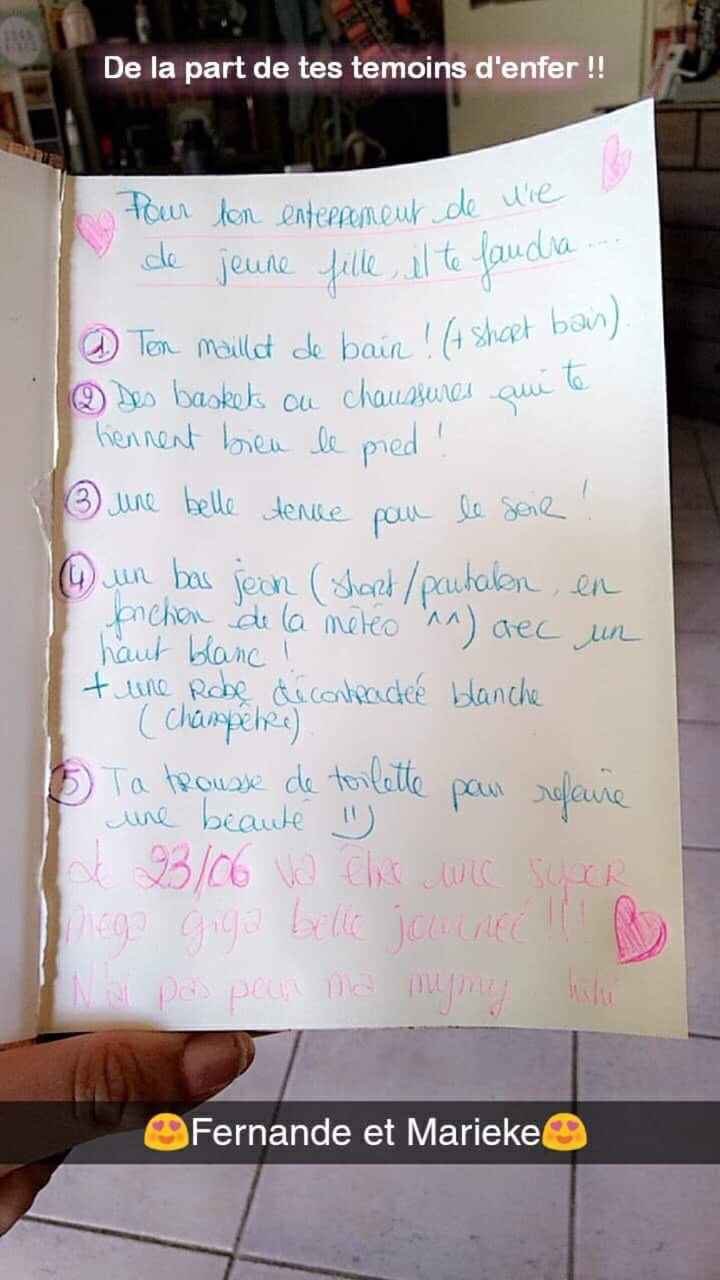 De la part de tes temoins d'enfer !!
Pour ton enterrement de vie
de jeune fille, il te faudra...
1 Ton maillot de bain ! (+ short bain)
2 Des baskets ou chaussures qui te
tiennent bien le pied !
3 une belle tenue pour le soir !
4 un bas jean (short/pantalon, en
fonction de la météo ^^) avec un
haut blanc !
+ une Robe décontractée blanche
(champêtre)
5 Ta trousse de toilette pour refaire
une beauté !!)
Le 23/06 va être une super
mega giga belle journée !!!
N'ai pas peur ma mymy hihi
😍Fernande et Marieke😍